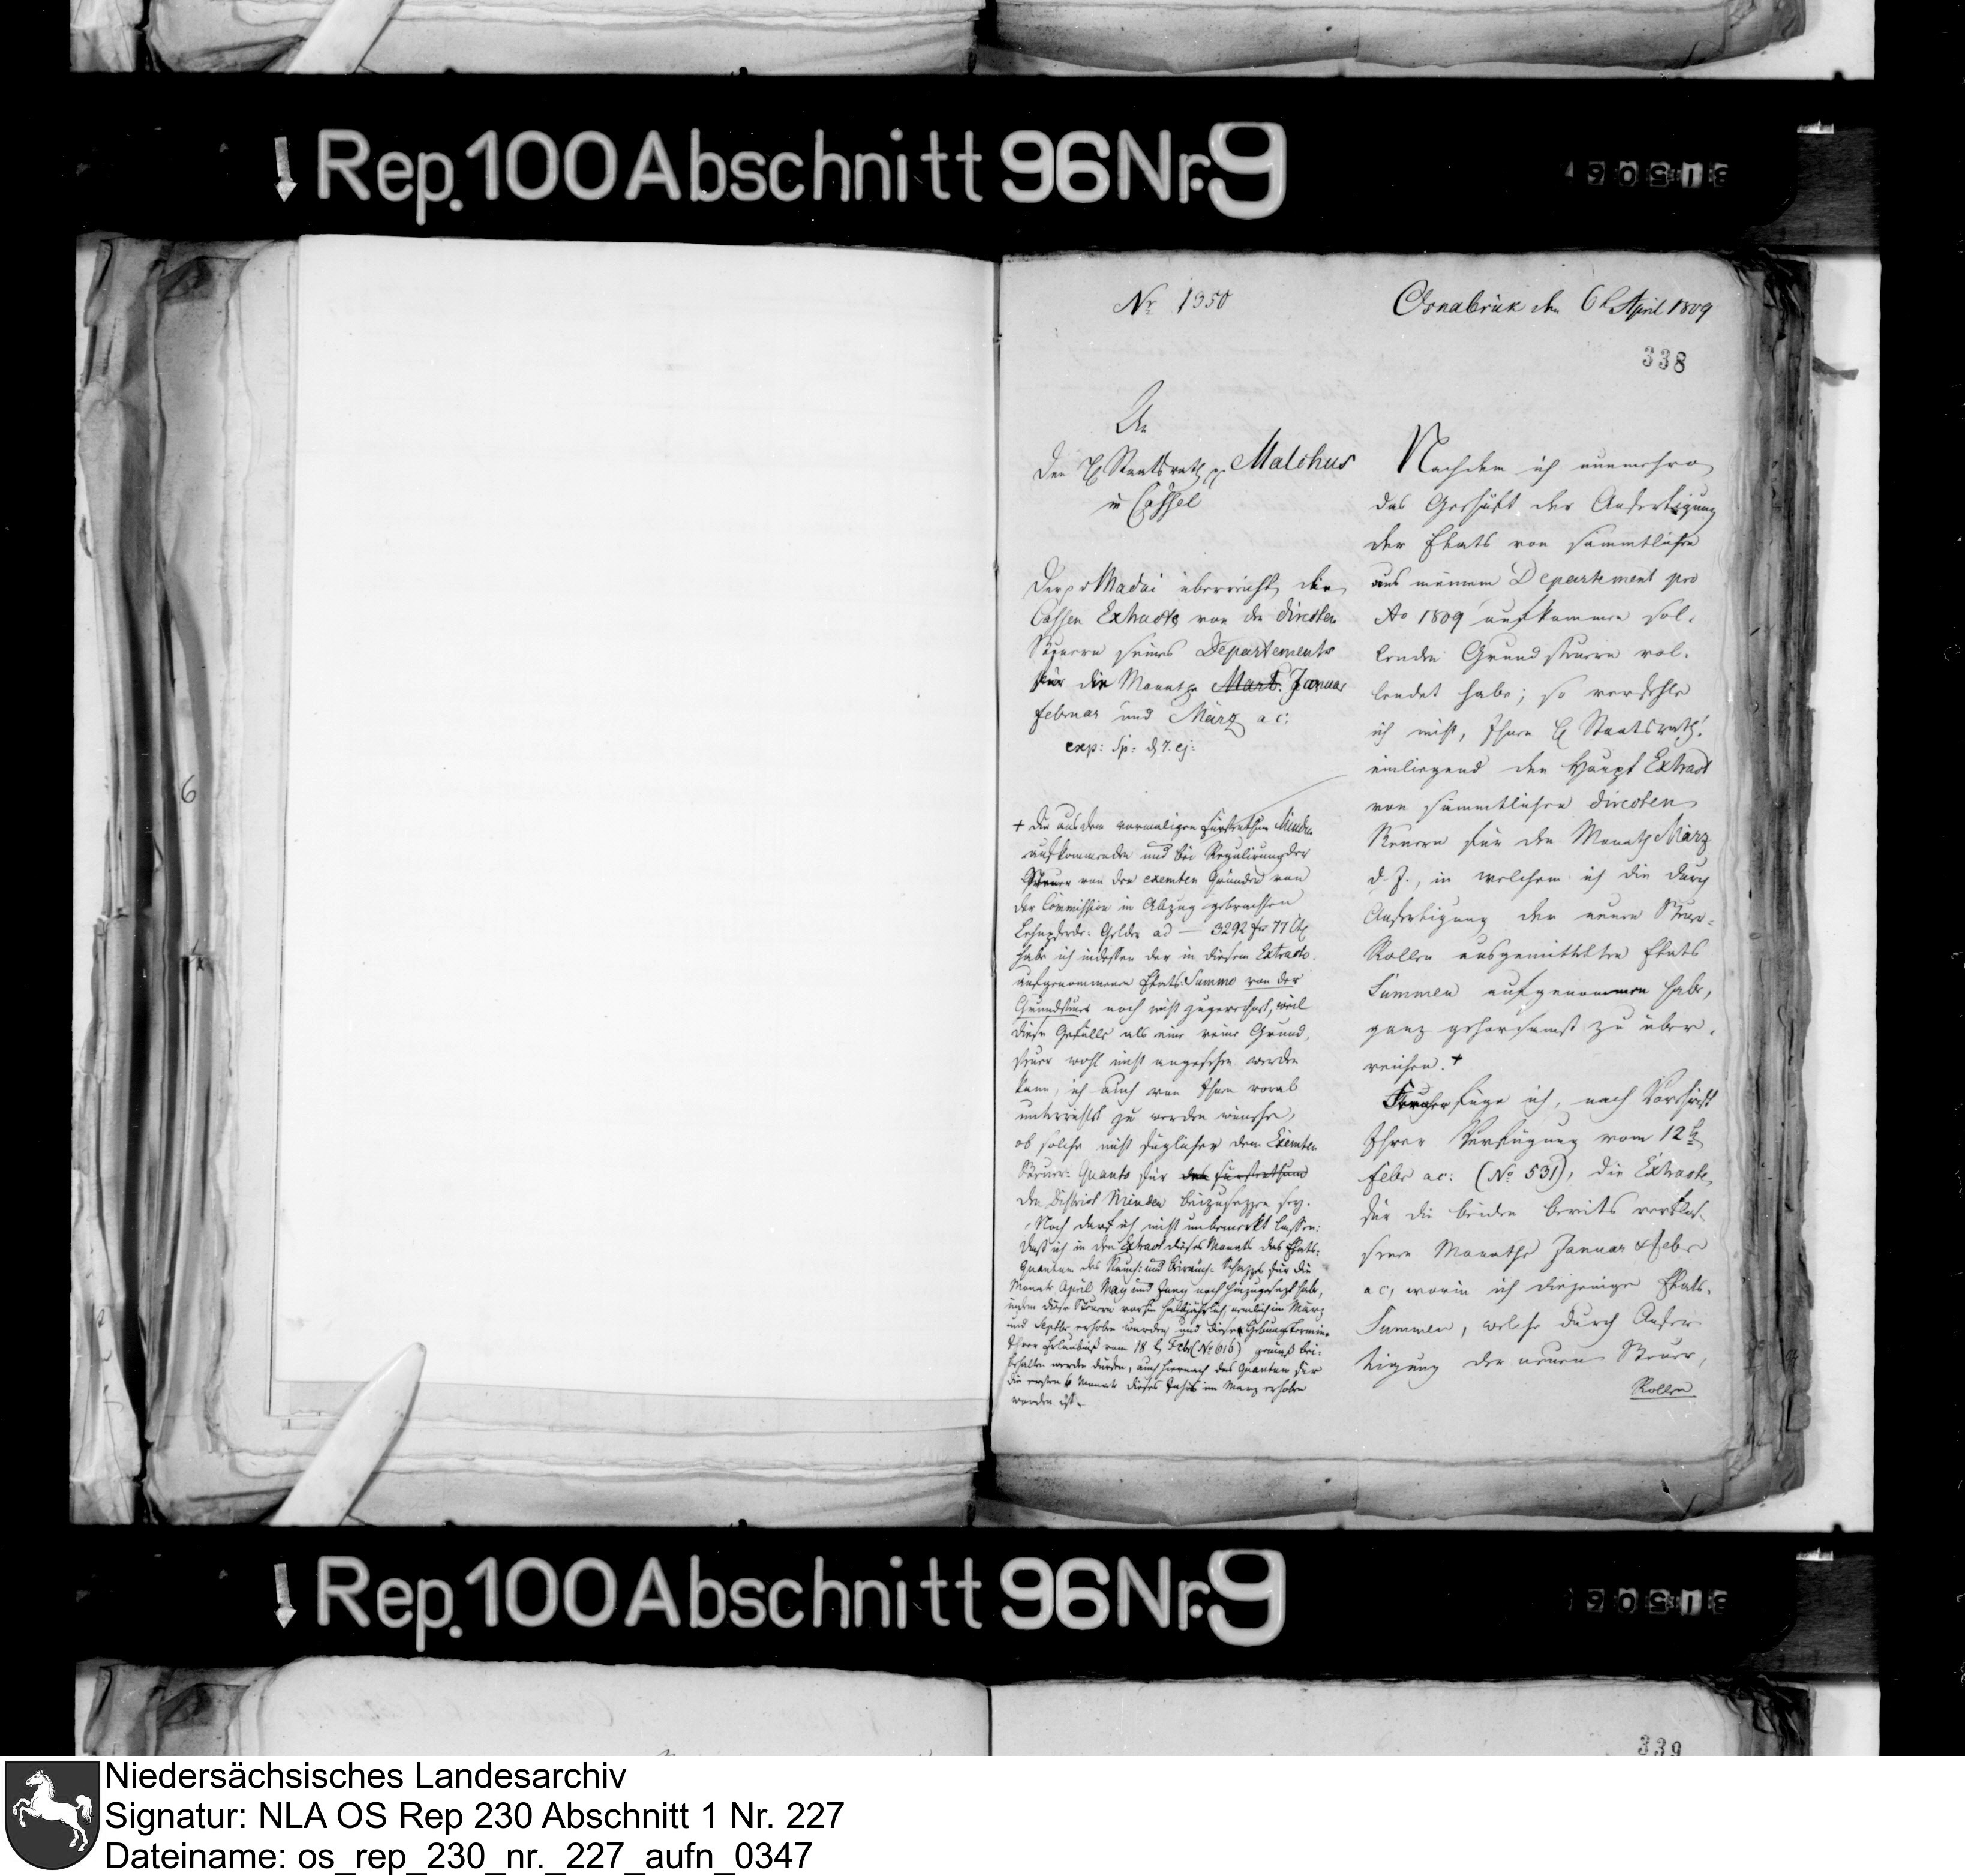 Rep. 100 Abschnitt 96 Nr. 9
Nr 1350
Osnabrück den 6t April 1809
338
An
den H Staatsrath p. Malchus
in Cassel
Der p v Madai überreicht die
Cassen Extracte von den directen
Steuern seines Departements
für die Monathe Mart. Januar
Februar und März a c:
exp: Sp: d 7. ej:
+ Die aus dem vormaligen Fürstenthum Minden
aufkommenden und bei Regulirung der
Steuer von den exemten Gründen von
der Commission in Abzug gebrachten
Lehnpferde-Gelder ad — 3292 fr 77 Ct
habe ich indessen der in diesem Extracte
aufgenommenen Etats-Summe von der
Grundsteuer noch nicht zugerechnet, weil
diese Gefälle als eine reine Grund-
steuer wohl nicht angesehen werden
kann, ich auch von Ihnen vorab
unterrichtet zu werden wünsche,
ob solche nicht füglicher dem Exemten
Steuer-Quanto für das Fürstenthum
den District Minden beizusetzen sey.
Noch darf ich nicht unbemerkt lassen:
daß ich in den Extract dieses Monats das Etats-
Quantum des Rauch- und Schatzes für die
Monate April May und Juny noch hinzugesetzt habe,
indem diese Steuern vorhin halbjährlich, nemlich im März
und Septbr erhoben wurden und dieser Hebungstermin
Ihrer Erlaubniß vom 18 t Feb (No 616) gemäß bei-
behalten werden dürfen, auch hiernach das Quantum für
die ersten 6 Monate dieses Jahrs im März erhoben
worden ist.
Nachdem ich nunmehro
das Geschäft der Anfertigung
der Etats von sämmtlichen
aus meinem Departement pro
Ao 1809 aufkommen sol-
lenden Grundsteuern vol-
lendet habe; so verfehle
ich nicht, Ihnen H Staatsrath!
einliegend den Haupt Extract
von sämmtlichen directen
Steuern für den Monath März
d. J., in welchem ich die durch
Anfertigung der neuen Steuer-
Rollen ausgemittelten Etats
Summen aufgenommen habe,
ganz gehorsamst zu über-
reichen. +
füge ich, nach Vorschrift
Ihrer Verfügung vom 12t
Febr ac: (No 531), die Extracte
für die beiden bereits verflos-
senen Monathe Januar & Febr
a c, worin ich diejenige Etats-
Summen, welche durch Anfer-
tigung der neuen Steuer-
Rollen
6
Rep. 100 Abschnitt 96 Nr. 9
339
Niedersächsisches Landesarchiv
Signatur: NLA OS Rep 230 Abschnitt 1 Nr. 227
Dateiname: os_rep_230_nr._227_aufn_0347